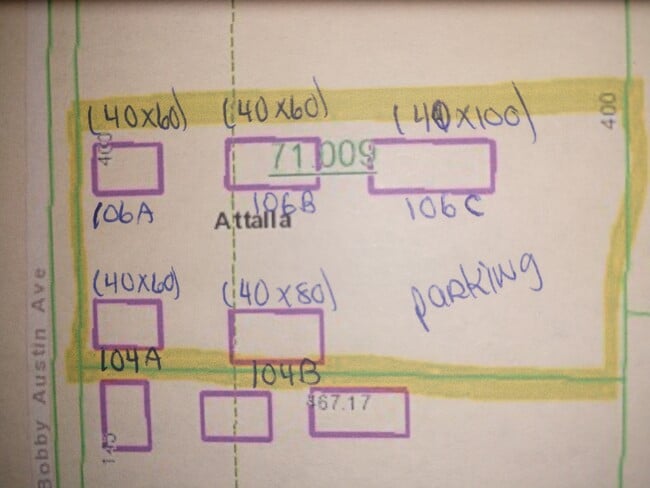 (40x60) (40x60) (40x100)
400 71.009 400
106A 106B 106C
Attalla
(40x60) (40x80) parking
104A 104B
467.17
Bobby Austin Ave